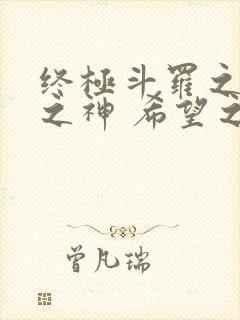 终极斗罗之
之神 希望之
曾凡瑞